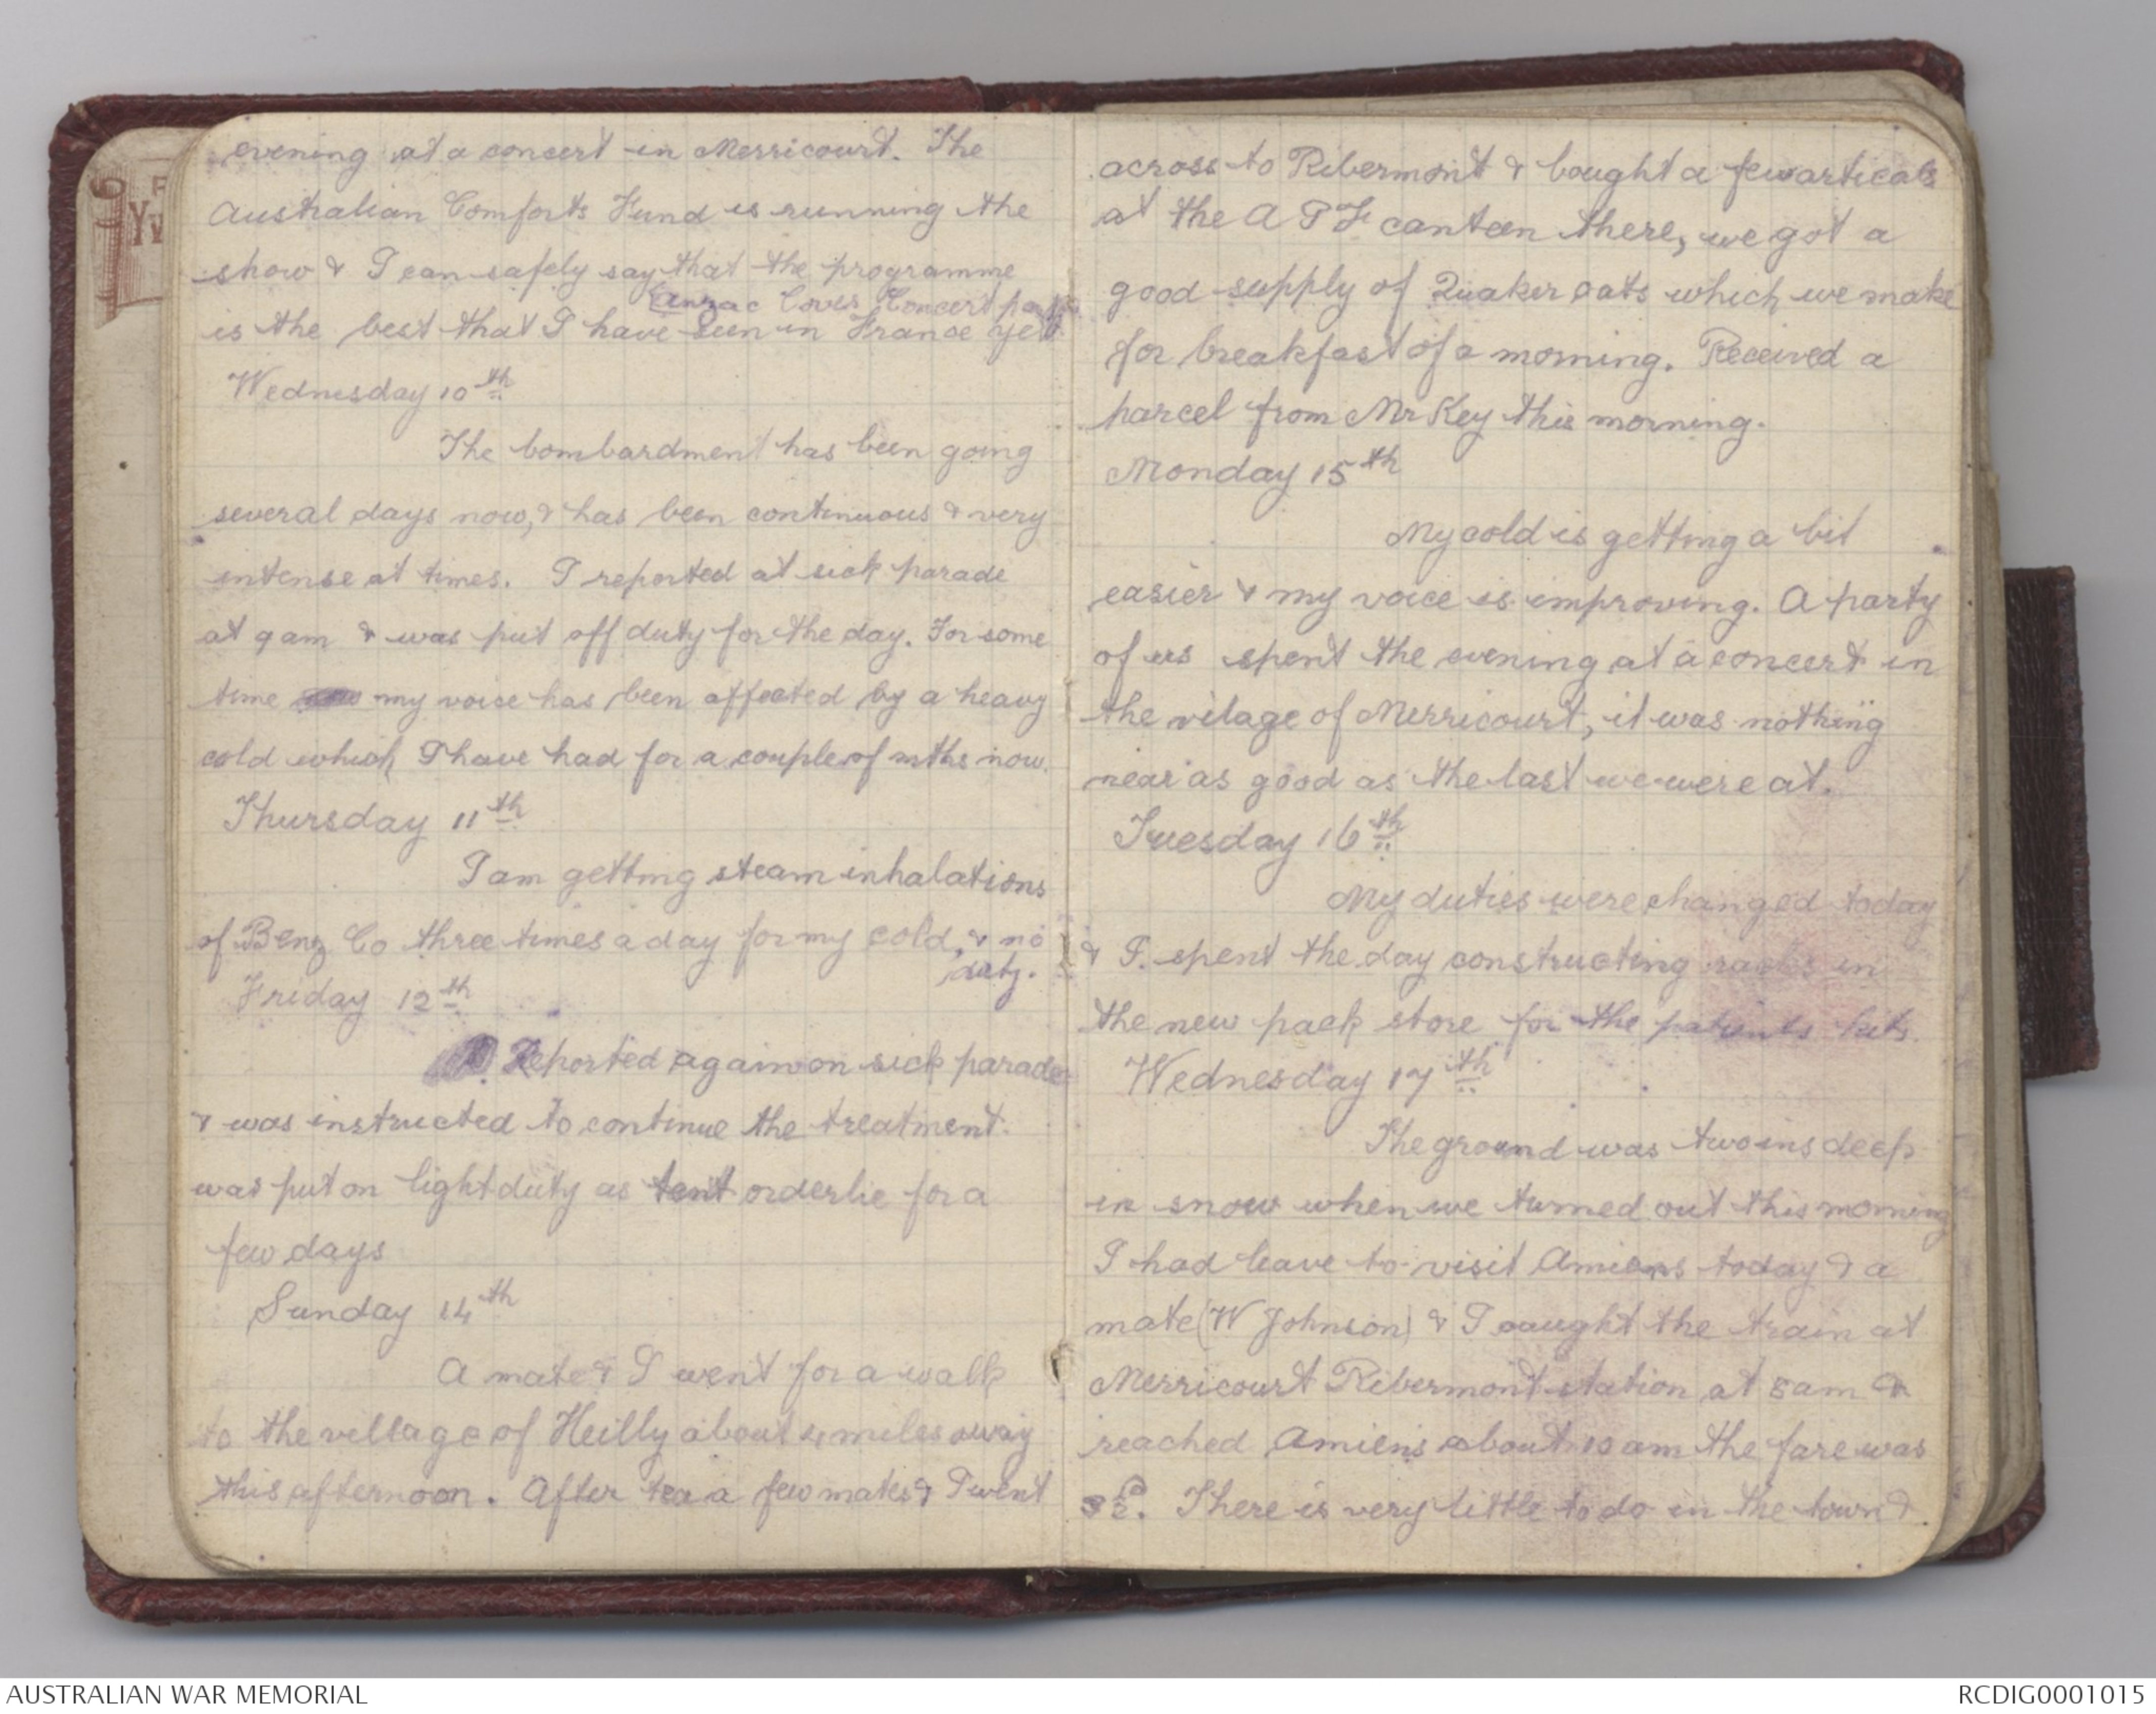 evening at a concert in Merricourt. The
Australian Comforts Fund is running the
show & I can safely say that the programme
Anzac Coves Concert party
is the best that I have seen in France yet
Wednesday 10th
The bombardment has been going
several days now, & has been continuous & very
intense at times. I reported at sick parade
at 9 am & was put off duty for the day. For some
time my voice has been affected by a heavy
cold which I have had for a couple of mths now.
Thursday 11th
I am getting steam inhalations
of Benz Co three times a day for my cold, & no
duty.
Friday 12th
Reported again on sick parade
& was instructed to continue the treatment.
was put on light duty as tent orderlie for a
few days
Sunday 14th
A mate & I went for a walk
to the village of Heilly about 4 miles away
this afternoon. After tea a few mates & I went
across to Ribermont & bought a few articals
at the A P F canteen there, we got a
good supply of Quaker oats which we make
for breakfast of a morning. Received a
parcel from Mr Key this morning.
Monday 15th
My cold is getting a bit
easier & my voice is improving. A party
of us spent the evening at a concert in
the vilage of Merricourt, it was nothing
near as good as the last we were at.
Tuesday 16th
My duties were changed today
& I. spent the day constructing racks in
the new pack store for the patients kits.
Wednesday 17th
The ground was two ins deep
in snow when we turned out this morning
I had leave to visit Amiens today & a
mate (W Johnson) & I caught the train at
Merricourt Ribermont station at 8 am &
reached Amiens about 10 am the fare was
There is very little to do in the town &
AUSTRALIAN WAR MEMORIAL
RCDIG0001015